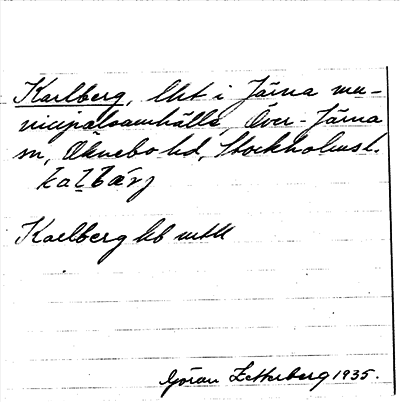 Karlberg, lht i Järna mu-
nicipalsamhälle, Över-Järna
sn, Öknebo hd, Stockholms l.
kaḷbärj
Karlberg hb
Göran Zetterberg 1935.